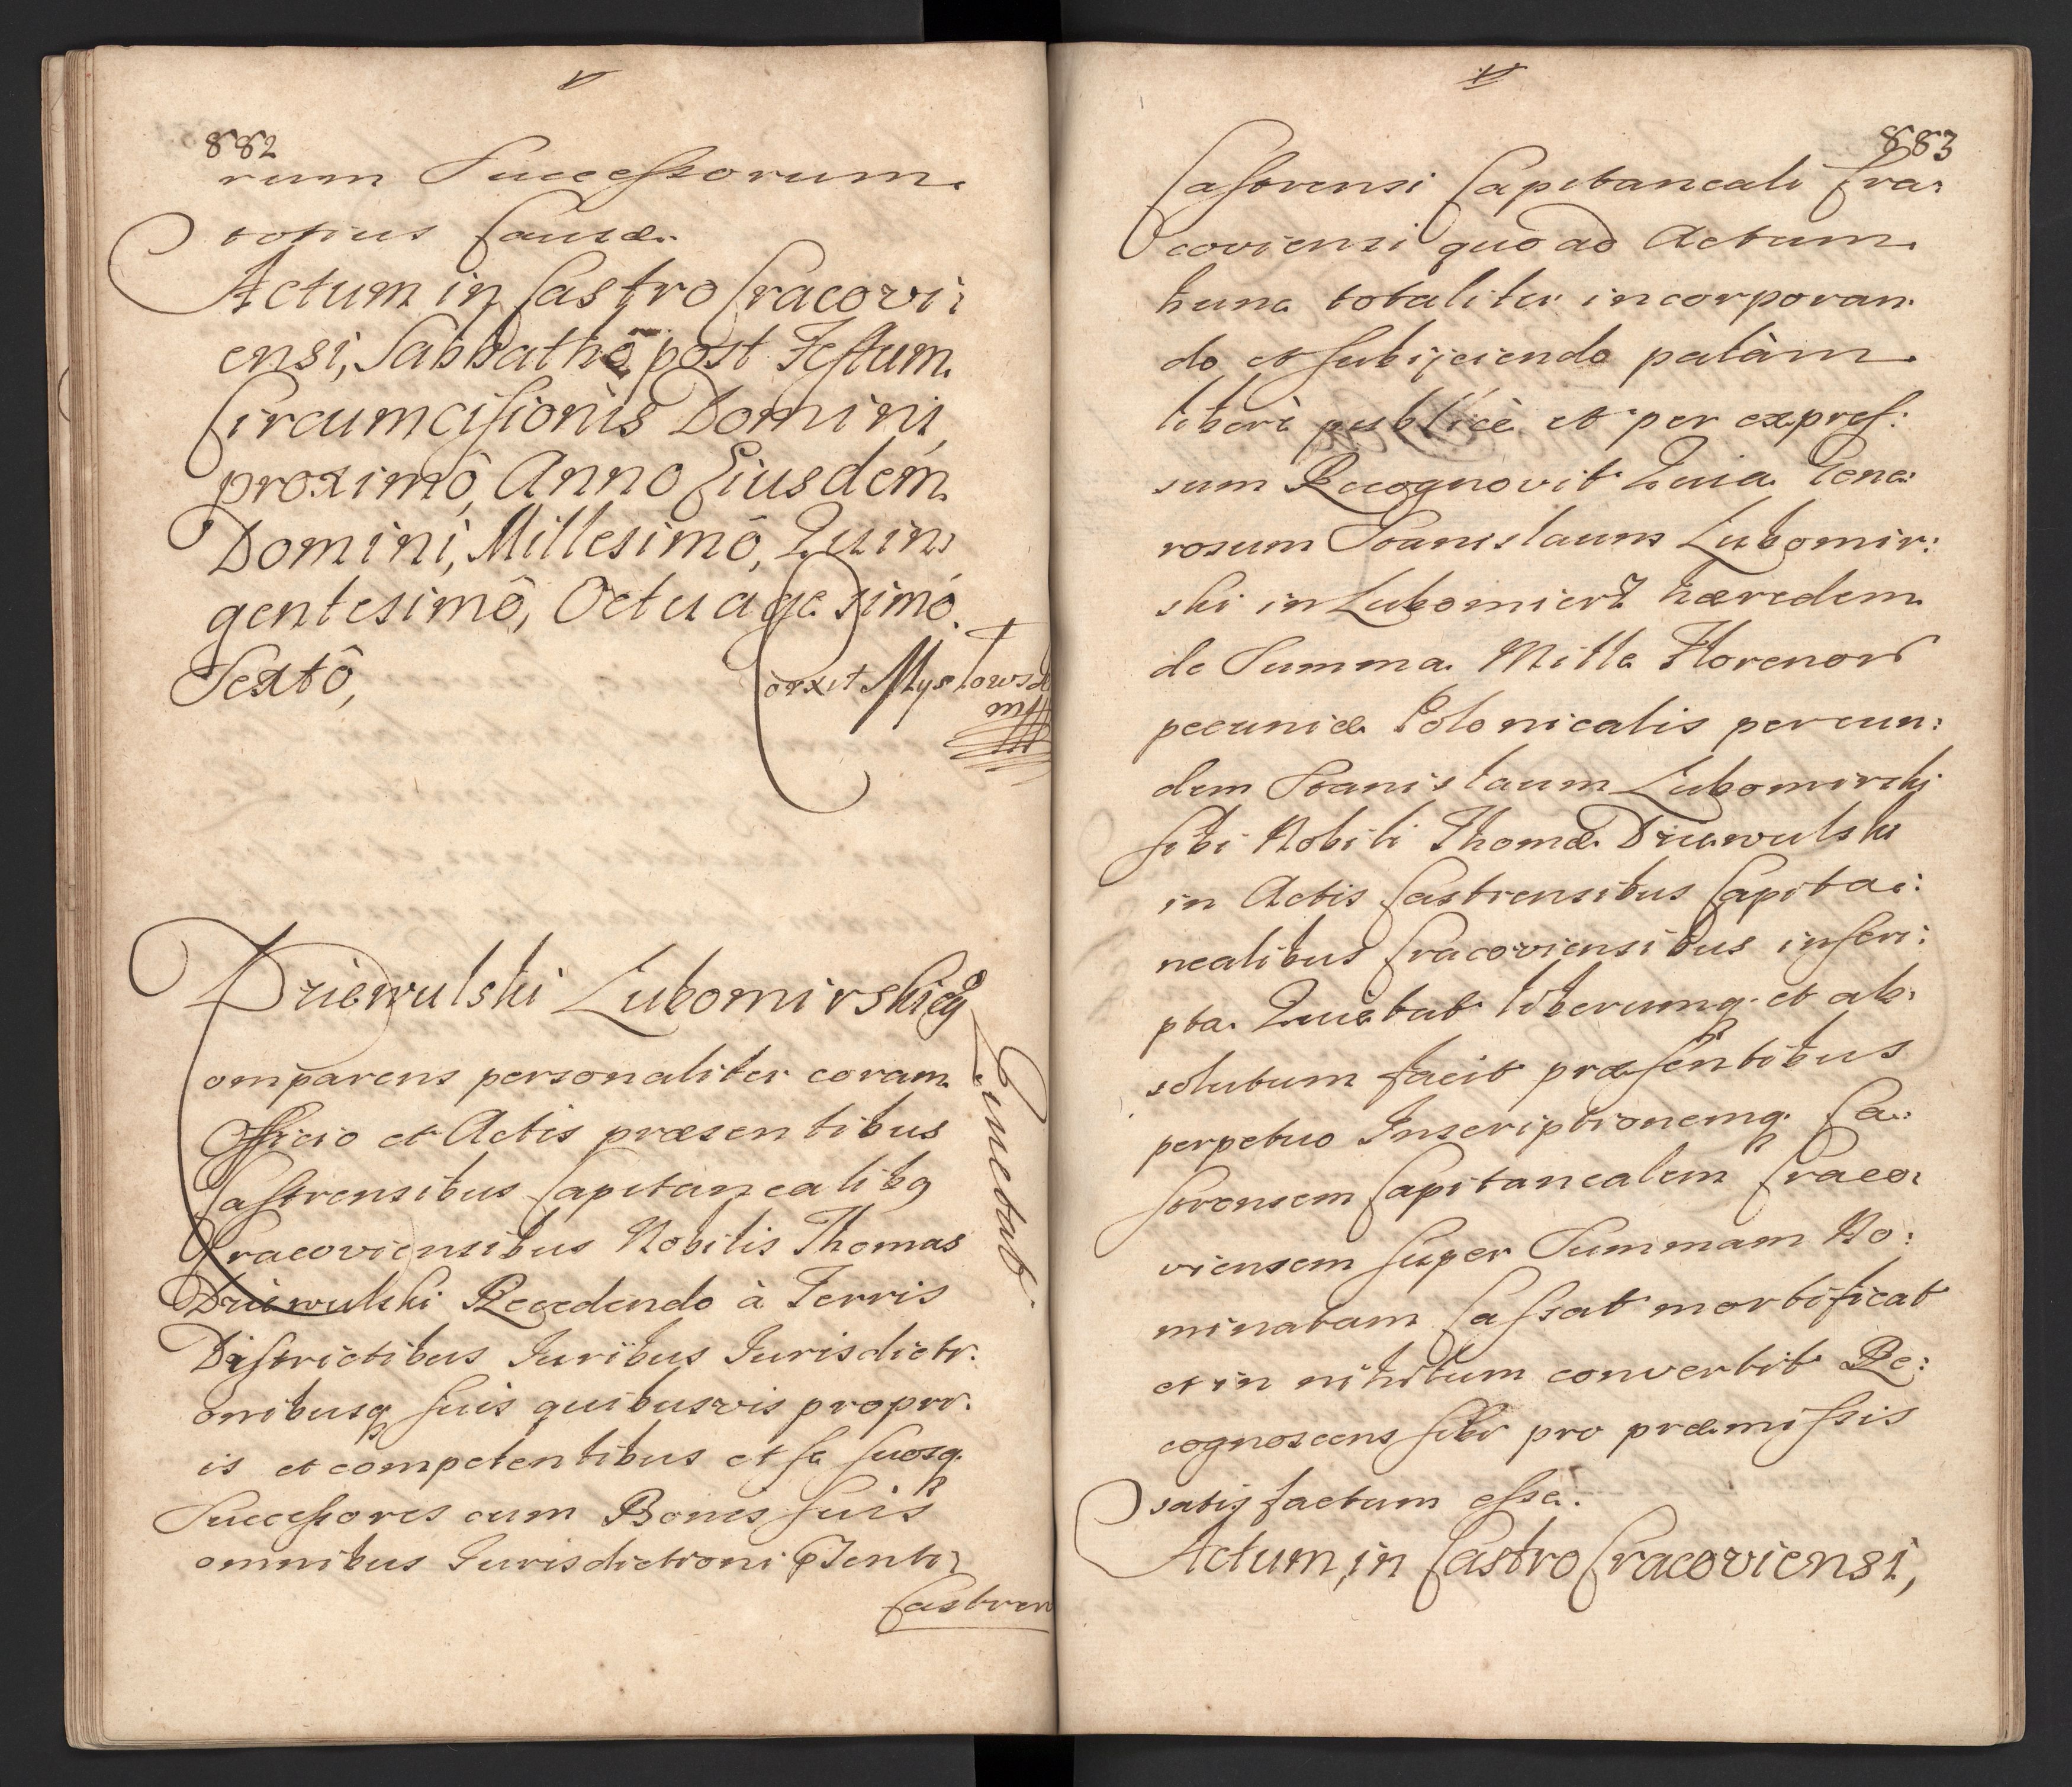 882
rum Successorum
totius causæ.
Actum in Castro Cracovi:
ensi, Sabbathô post Festum
Circumcisionis Domini,
proximô, Anno Eiusdem
Domini, Millesimô, Quin:
gentesimô, Octuagesimô.
Sextô,
Corxit Mysłowski
mpp
Driewulski Lubomirskieg
Quietat
Comparens personaliter coram
Officio et Actis præsentibus
Castrensibus Capitanealibq
Cracoviensibus Nobilis Thomas
Driewulski Recedendo à Terris
Districtibus Iuribus Iurisdicti:
onibusq suis quibusvis propri:
is et competentibus et se suosq.
Successores cum Bonis suis
omnibus Iurisdictioni Ptenti
Castren
883
Castrensi Capitaneali Cra:
coviensi quo ad Actum
hunc totaliter incorporan:
do et subijciendo palàm
liberè publicè et per expres:
sum Recognovit Quia Gene:
rosum Stanislaum Lubomir:
ski in Lubomierz hæredem
de Summa Mille Floreno
pecuniæ Polonicalis per eun:
dem Stanislaum Lubomirskj
sibi Nobili Thomæ Driewulski
in Actis Castrensibus Capita:
nealibus Cracoviensibus inscri:
pta Quietat liberumq. et ab:
solutum facit præsentibus
perpetuo Inscriptionemq. Ca:
strensem Capitanealem Craco:
viensem super Summam No:
minatam Cassat mortificat
et in nihilum convertit Re:
cognoscens sibi pro præmissis
satisfactum esse.
Actum, in Castro Cracoviensi,